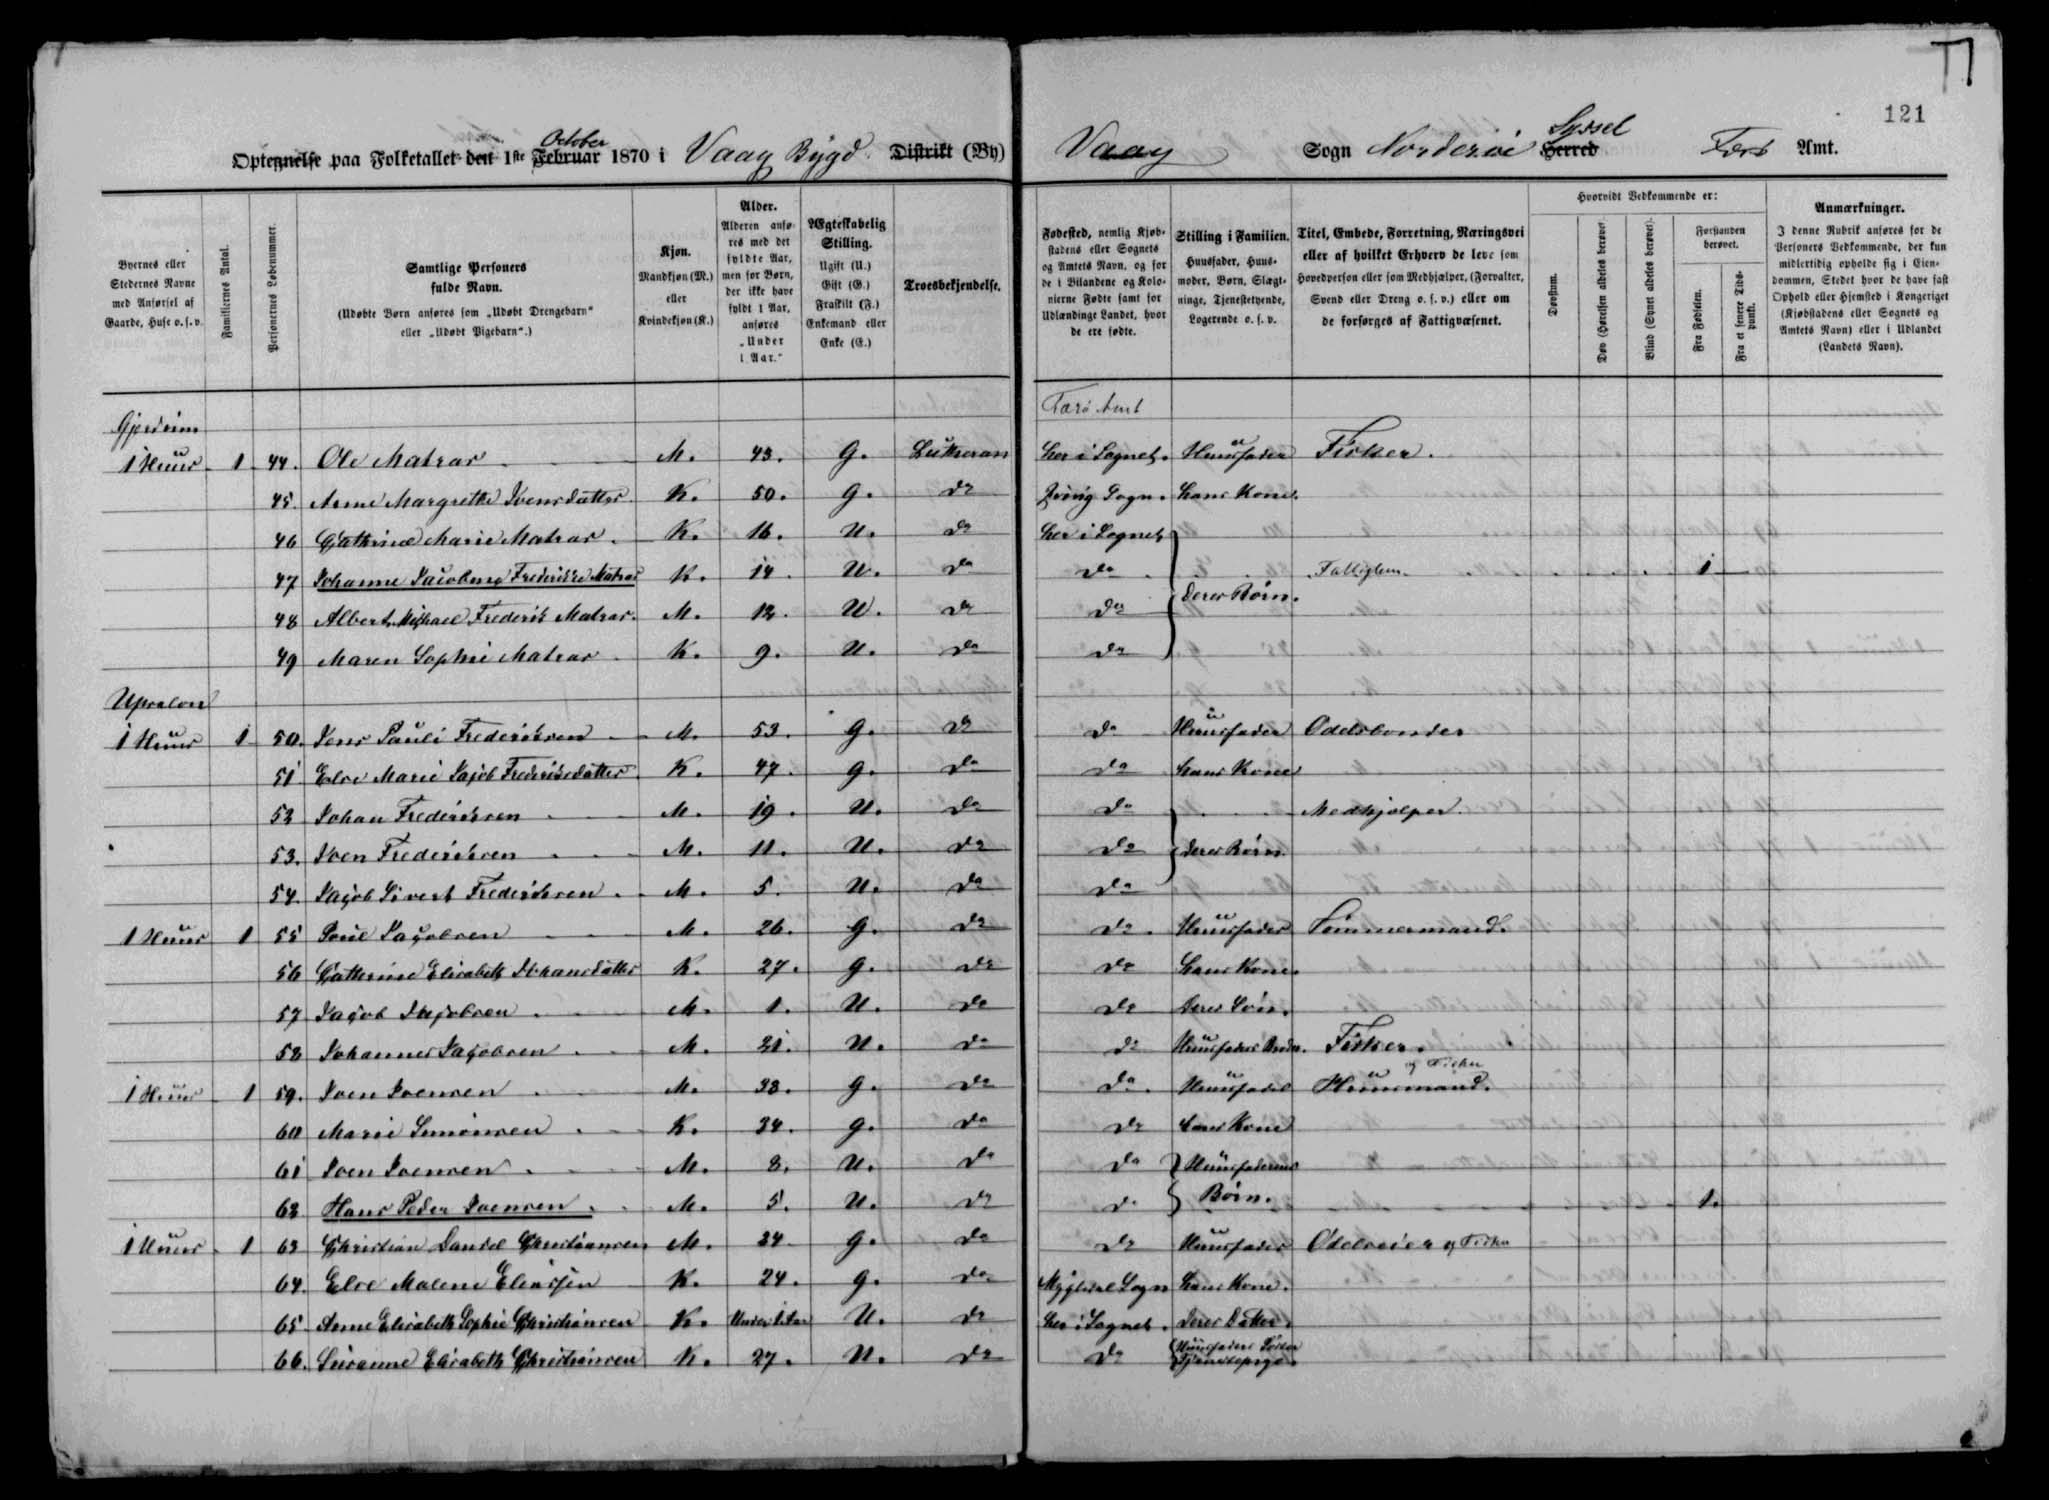 121
Optegnelse paa Folketallet den 1ste Februar October 1870 i Vaag Bygd Distrikt (By)
Vaag Sogn Norderøe Herred Syssel Færø Amt.
Byernes eller Stedernes Navne med Anførsel af Gaarde, Huse o. s. v.
Familiernes Antal.
Personernes Løbenummer.
Samtlige Personers fulde Navn.
(Udøbte Børn anføres som „Udøbt Drengebarn“ eller „Udøbt Pigebarn“.)
Kjøn.
Mandkjøn (M.) eller Kvindekjøn (K.)
Alder.
Alderen anføres med det fyldte Aar, men for Børn, der ikke have fyldt 1 Aar, anføres „Under 1 Aar.“
Ægteskabelig Stilling.
Ugift (U.) Gift (G.) Fraskilt (F.) Enkemand eller Enke (E.)
Troesbekjendelse.
Fødested, nemlig Kjøbstadens eller Sognets og Amtets Navn, og for de i Bilandene og Kolonierne Fødte samt for Udlændinge Landet, hvor de ere fødte.
Stilling i Familien.
Huusfader, Huusmoder, Børn, Slægtninge, Tjenestetyende, Logerende o. s. v.
Titel, Embede, Forretning, Næringsvei eller af hvilket Erhverv de leve som Hovedperson eller som Medhjælper, (Forvalter, Svend eller Dreng o. s. v.) eller om de forsørges af Fattigvæsenet.
Hvorvidt Vedkommende er:
Døvstum.
Døv (Hørelsen aldeles berøvet).
Blind (Synet aldeles berøvet).
Forstanden berøvet.
Fra Fødselen.
Fra et senere Tidspunkt.
Anmærkninger.
I denne Rubrik anføres for de Personers Vedkommende, der kun midlertidig opholde sig i Eiendommen, Stedet hvor de have fast Ophold eller Hjemsted i Kongeriget (Kjøbstadens eller Sognets og Amtets Navn) eller i Udlandet (Landets Navn).
Færø Amt
1 Huus 1 44. Ole Matras M. 43. G. Lutheran her i Sognet. Huusfader Fisker.
45. Anne Margrethe Joensdatter K. 50. G. do Sogn. hans Kone.
46 Cathrine Marie Matras K. 16. U. do her i Sognet
47 Johanne Jacobine Frederikke Matras K. 14. U. do do Fattiglem. 1
48 Albert Michael Frederik Matras. M. 12. U. do do deres Børn.
49 Maren Sophie Matras K. 9. U. do do
Upsalon
1 Huus 1 50. Jens Pauli Frederiksen M. 53. G. do do Huusfader Odelsbonde
51 Else Marie Jacob Frederiksdatter K. 47. G. do do hans Kone
52 Johan Frederiksen M. 19. U. do do Medhjælper.
53. Joen Frederiksen M. 11. U. do do deres Børn.
54. Jacob Sivert Frederiksen M. 5. U. do do
1 Huus 1 55 Poul Jacobsen M. 26. G. do do Huusfader Tømmermand.
56 Cathrine Elisabeth Johansdatter K. 27. G. do do hans Kone.
57 Jacob Jacobsen M. 1. U. do do deres Søn.
58 Johannes Jacobsen M. 21. U. do do Huusfaders Broder. Fisker.
1 Huus 1 59. Joen Joensen M. 33. G. do do Huusfader Huusmand og Fisker
60 Marie Simonsen K. 34. G. do do hans Kone
61 Joen Joensen M. 8. U. do do Huusfaderens
62 Hans Peder Joensen M. 5. U. do do Børn. 1.
1 Huus 1 63 Christian Daniel Christiansen M. 24 G. do do Huusfader Odelseier og Fisker
64. Else Malene Eliasen K. 24. G. do Sogn hans Kone.
65 Anne Elisabeth Sophie Christiansen K. Under 1 Aar U. do her i Sognet. deres Datter.
66. Susanne Elisabeth Christiansen K. 27. U. do do Huusfaders Søster Tjenestepige.